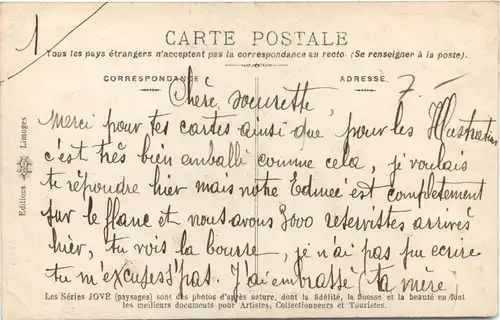 1
CARTE POSTALE
Tous les pays étrangers n'acceptent pas la correspondance au recto. (Se renseigner à la poste).
CORRESPONDANCE
ADRESSE
7. —
Chère soeurette,
Merci pour tes cartes ainsi que pour les Illustration
c'est très bien amballé comme cela, je voulais
te répondre hier mais notre Edmée est completement
sur le flanc et nous avons 3000 reservistes arrivés
hier, tu vois la bourre, je n'ai pas pu ecrire
tu m'excuses s'pas. J'ai embrassé (ta mère)
Editions Limoges
Les Séries JOVÉ (paysages) sont des photos d'après nature, dont la fidélité, la finesse et la beauté en font
les meilleurs documents pour Artistes, Collectionneurs et Touristes.